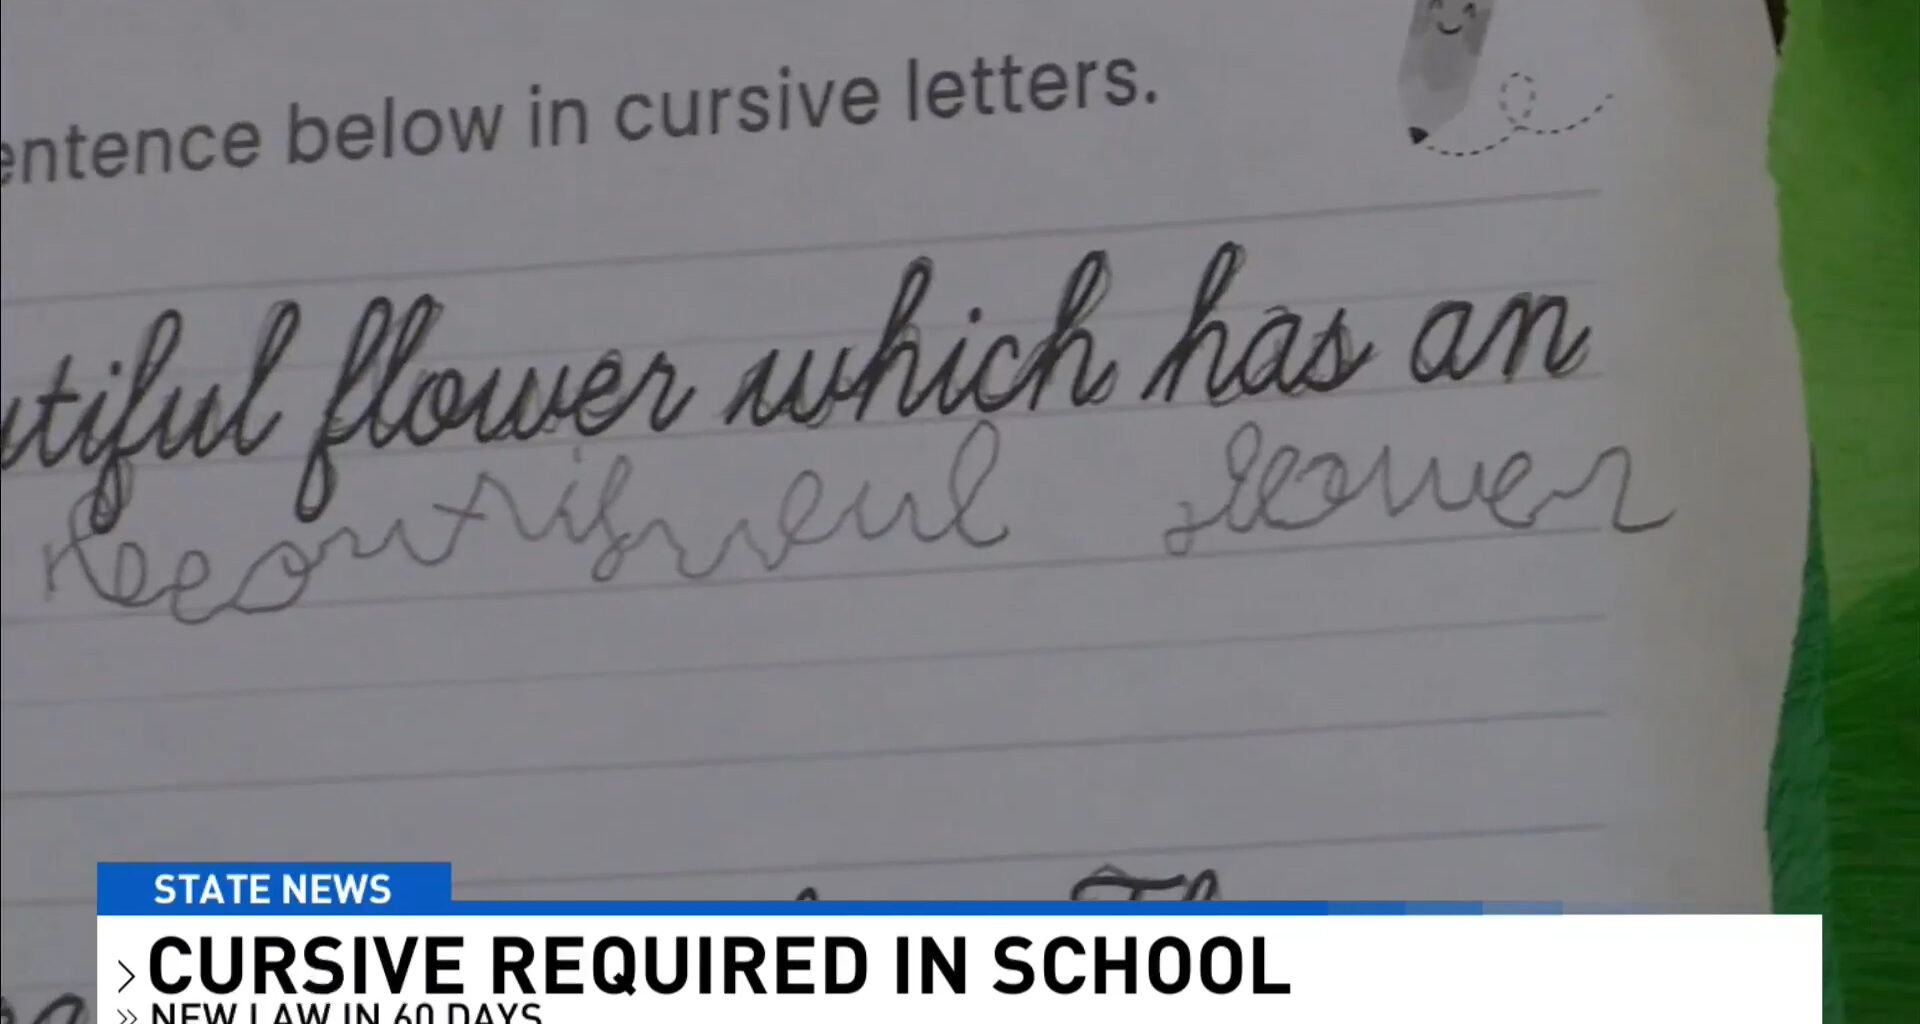 entence below in cursive letters.
utiful flower which has an
beautiful flower
Th
STATE NEWS
CURSIVE REQUIRED IN SCHOOL
NEW LAW IN 60 DAYS